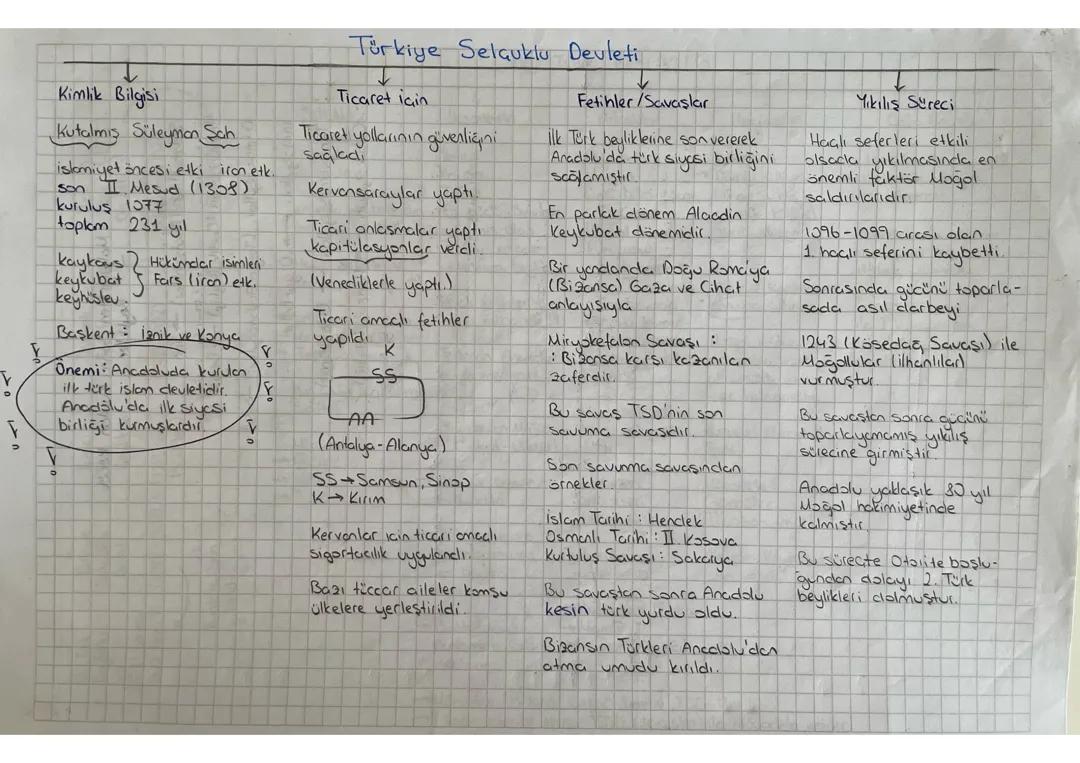 Türkiye Selçuklu Devleti
Kimlik Bilgisi
Kutalmış Süleyman Şah
islamiyet öncesi etki iran etk.
son II. Mesud (1308)
kuruluş 1077
toplam 231 yıl
kaykavs
keykubat
keyhüsrev.
Hükümdar isimleri
Fars (iran) etk.
Başkent : iznik ve Konya
Önemi: Anadoluda kurulan
ilk türk islam devletidir.
Anadolu'da ilk siyasi
birliği kurmuşlardır.
Ticaret için
Ticaret yollarının güvenliğini
sağladı
Kervansaraylar yaptı.
Ticari anlaşmalar yaptı
kapitülasyonlar verdi.
(Venediklerle yaptı.)
Ticari amaçlı fetihler
yapıldı
K
SS
AA
(Antalya-Alanya)
SS→Samsun, Sinop
K→ Kırım
Kervanlar için ticari amaçlı
sigortacılık uygulandı.
Bazı tüccar aileler komşu
ülkelere yerleştirildi.
Fetihler/Savaşlar
ilk Türk beyliklerine son vererek
Anadolu'da türk siyasi birliğini
sağlamıştır.
En parlak dönem Alaadin
Keykubat dönemidir.
Bir yandanda Doğu Roma'ya
(Bizansa) Gaza ve Cihat
anlayışıyla
Miryokefalon Savaşı :
: Bizansa karşı kazanılan
zaferdir.
Bu savaş TSD'nin son
savuma savaşıdır.
Son savunma savaşından
örnekler.
İslam Tarihi : Hendek
Osmanlı Tarihi : II. Kosova
Kurtuluş Savaşı : Sakarya
Bu savaştan sonra Anadolu
kesin türk yurdu oldu.
Bizansın Türkleri Anadolu'dan
atma umudu kırıldı.
Yıkılış Süreci
Haçlı seferleri etkili
olsada yıkılmasında en
önemli faktör Moğol
saldırılarıdır.
1096-1099 arası olan
1. haçlı seferini kaybetti.
Sonrasında gücünü toparla-
sada asıl darbeyi
1243 (Kösedağ Savaşı) ile
Moğollular (ilhanlılar)
vurmuştur.
Bu savaştan sonra gücünü
toparlayamamış yıkılış
sürecine girmiştir.
Anadolu yaklaşık 80 yıl
Moğol hakimiyetinde
kalmıştır.
Bu süreçte Otorite boşlu-
ğundan dolayı 2. Türk
beylikleri